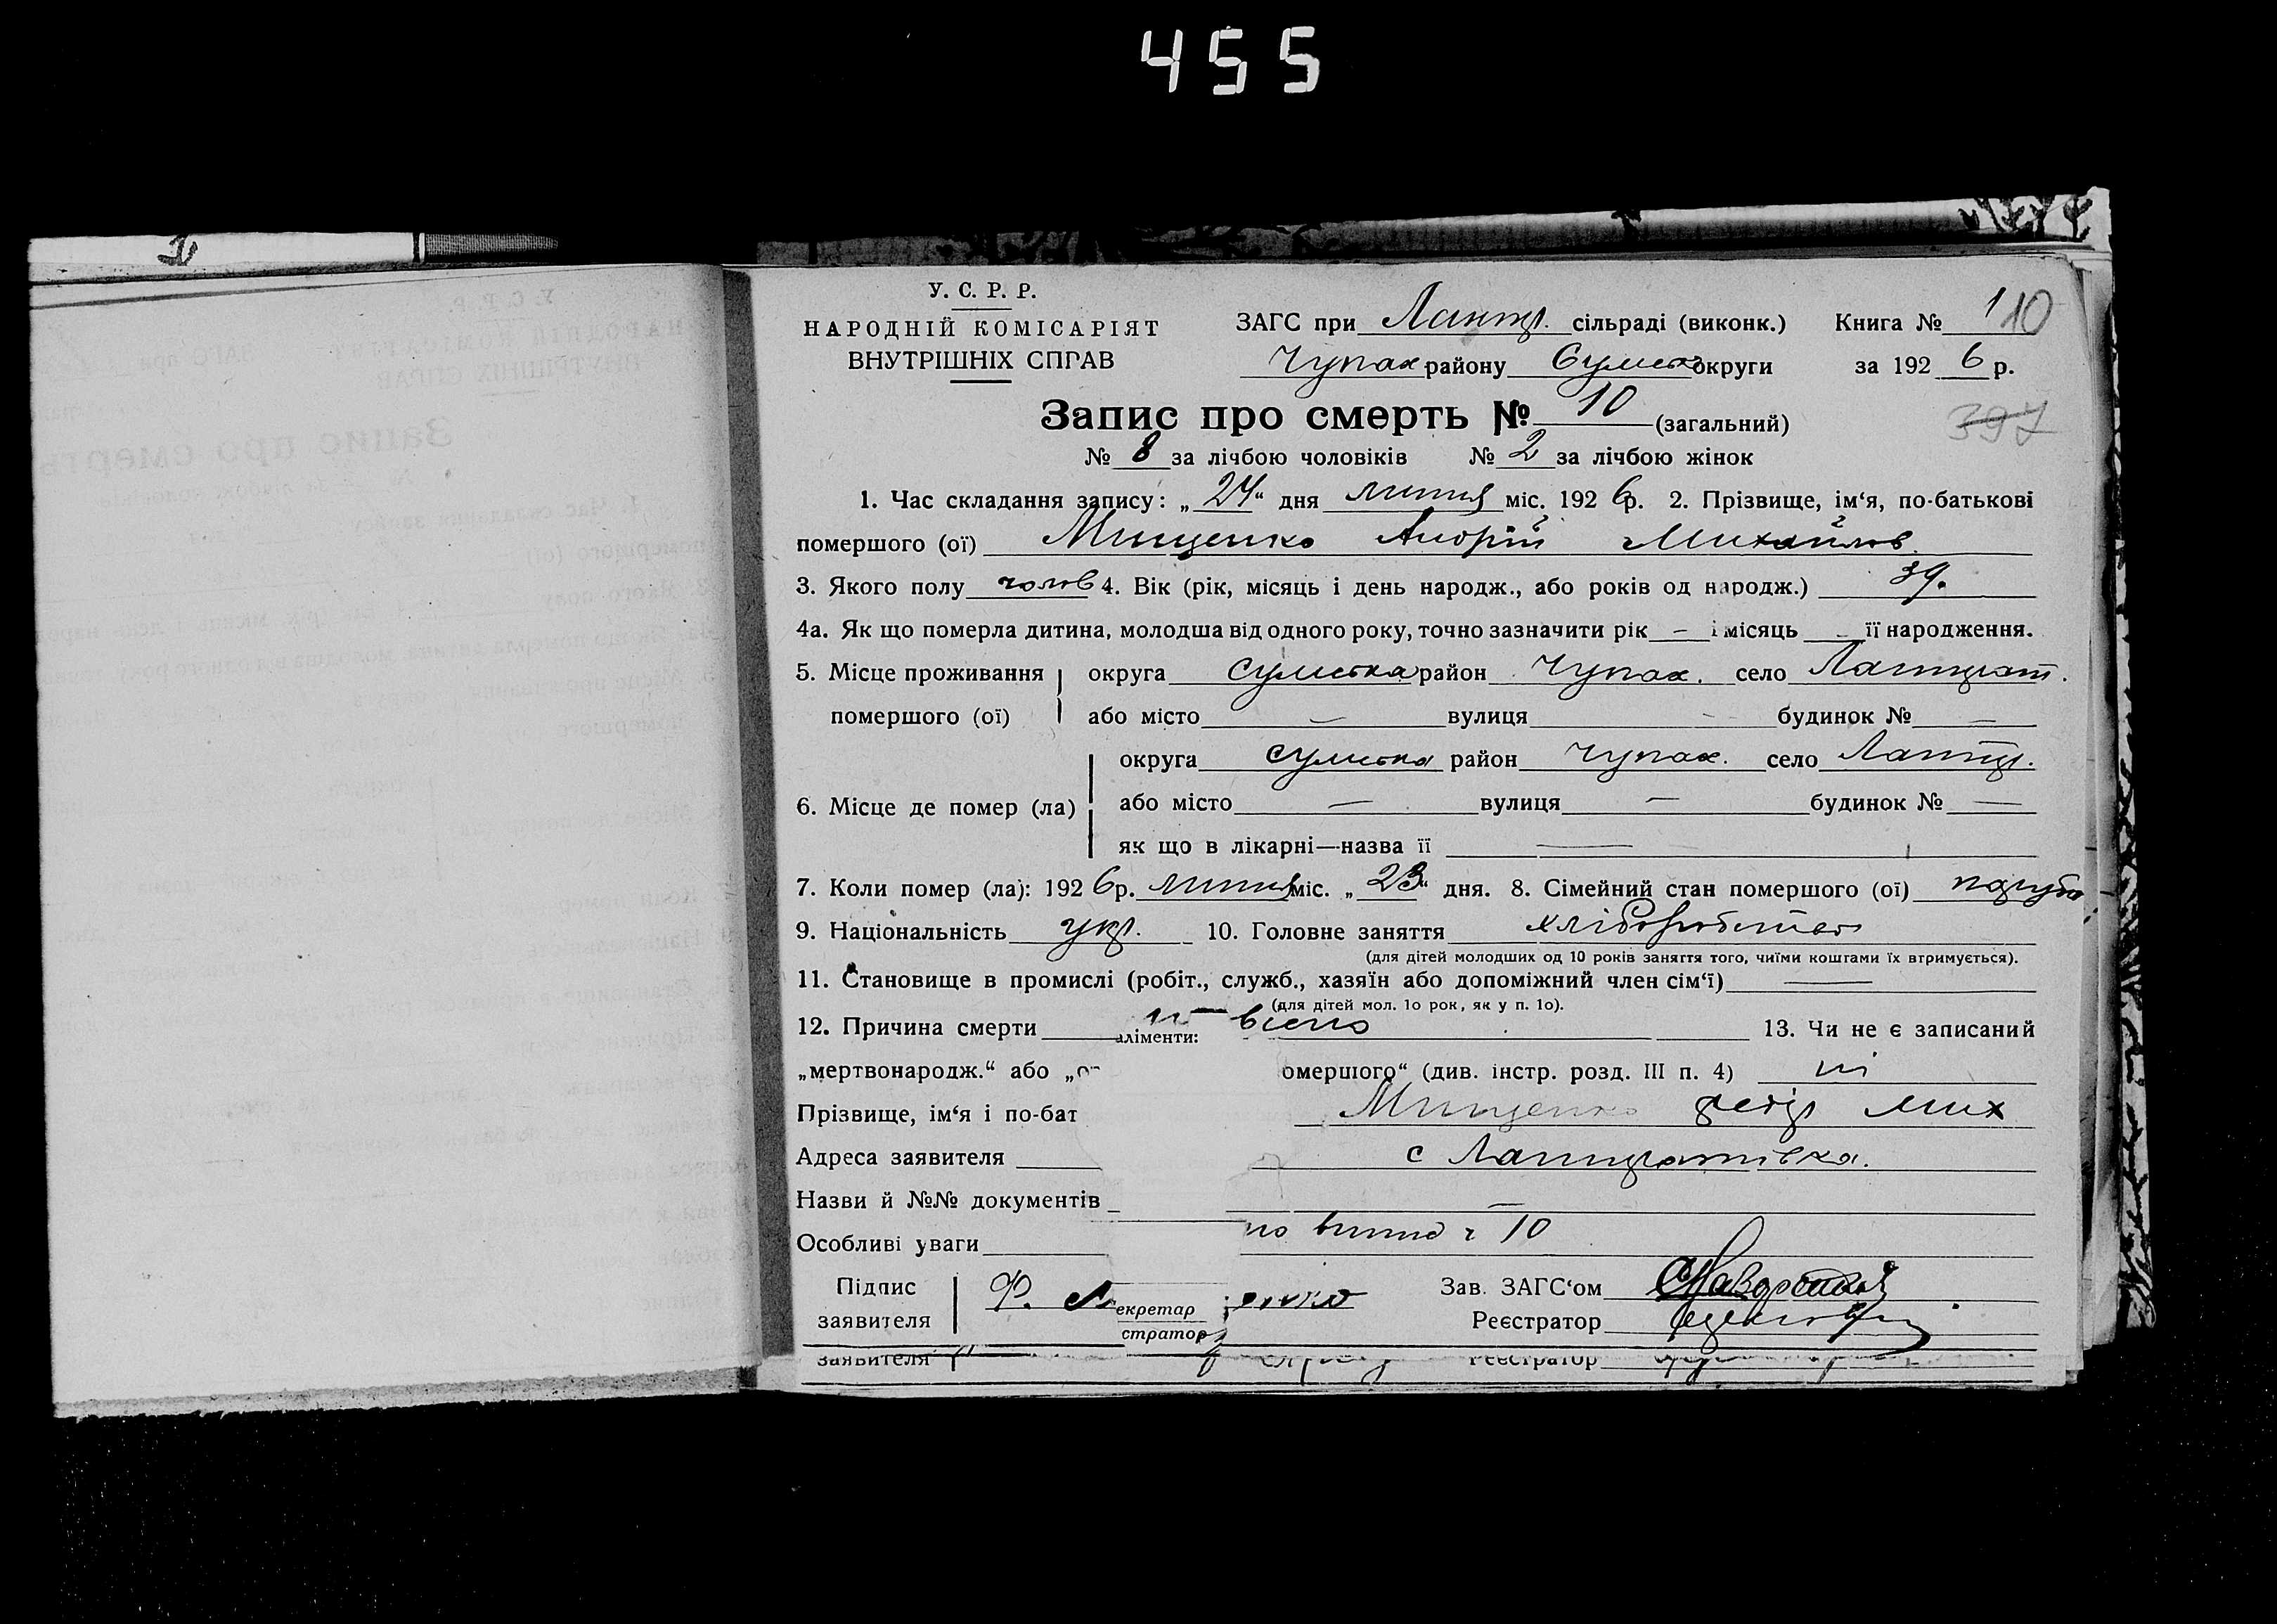 455
У. С. Р. Р.
НАРОДНІЙ КОМІСАРІЯТ
ВНУТРІШНІХ СПРАВ
ЗАГС при сільраді (виконк.) Книга № 1 10
Чупах району Сумск округи за 1926 р.
397
Запис про смерть № 10 (загальний)
№ 8 за лічбою чоловіків № 2 за лічбою жінок
1. Час складання запису: „24“ дня липня міс. 1926 р. 2. Прізвище, ім‘я, по-батькові
помершого (ої) Мищенко Андрій Михайлов
3. Якого полу чолов 4. Вік (рік, місяць і день народж., або років од народж.) 39.
4а. Як що померла дитина, молодша від одного року, точно зазначити рік — і місяць — її народження.
5. Місце проживання помершого (ої) округа Сумська район Чупах. село
або місто — вулиця — будинок № —
6. Місце де помер (ла) округа Сумська район Чупах. село
або місто — вулиця — будинок № —
як що в лікарні—назва її —
7. Коли помер (ла): 1926 р. липня міс. „23“ дня. 8. Сімейний стан помершого (ої)
9. Національність укр. 10. Головне заняття хліборобство
(для дітей молодших од 10 років заняття того, чиїми коштами їх втримується).
11. Становище в промислі (робіт., служб., хазяїн або допоміжний член сім‘ї) —
(для дітей мол. 10 рок, як у п. 10).
12. Причина смерти 13. Чи не є записаний
аліменти:
„мертвонародж.“ або „ омершого“ (див. інстр. розд. III п. 4) ні
Прізвище, ім‘я і по-бат Мищенко мих
Адреса заявителя с
Назви й №№ документів —
Особливі уваги 10
Підпис заявителя Ф. енко
екретар
стратор
Зав. ЗАГС‘ом
Реєстратор
заявителя Реєстратор